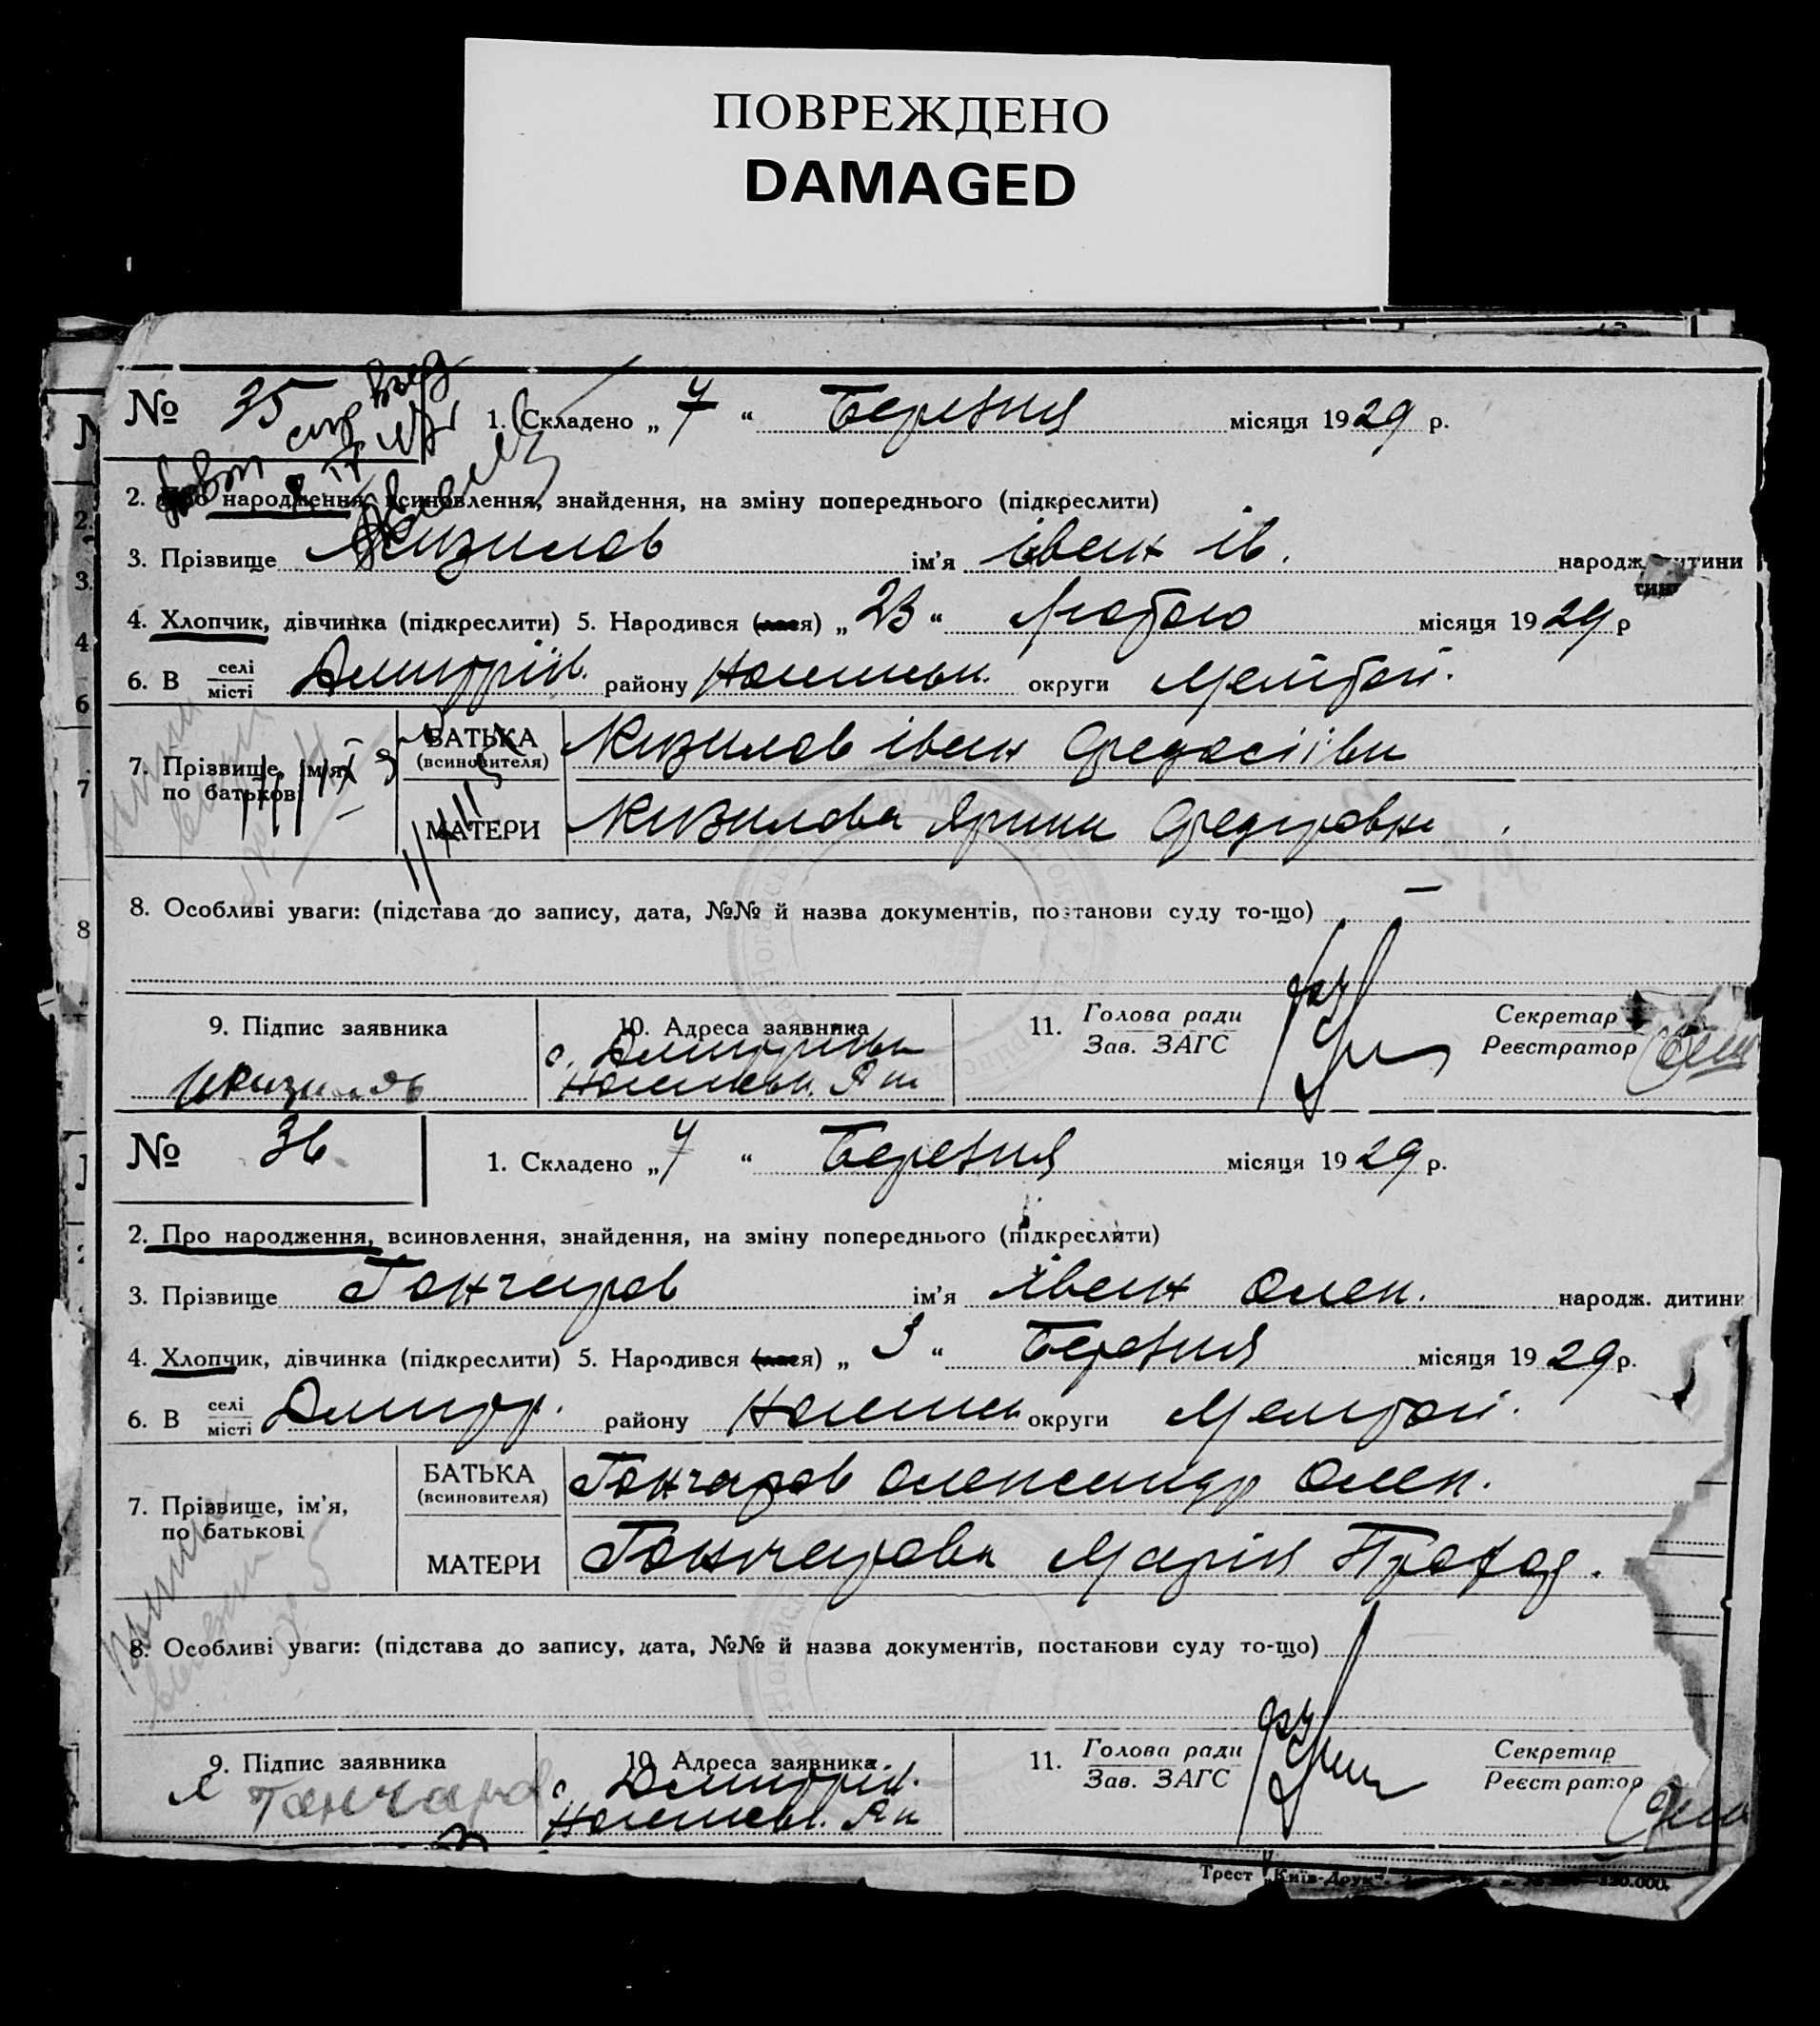 ПОВРЕЖДЕНО
DAMAGED
№ 35
1. Складено „ 7 “ Березня місяця 1929 р.
2. Про народження, всиновлення, знайдення, на зміну попереднього (підкреслити)
3. Прізвище Кизилов ім'я Іван Ів. народж. дитини
4. Хлопчик, дівчинка (підкреслити) 5. Народився (лася) „ 23 “ Лютого місяця 1929 р
6. В селі місті Дмитрів. району округи Мелітоп.
7. Прізвище, ім'я, по батькові
БАТЬКА (всиновителя) Кизилов Іван Федосіїв
МАТЕРИ Кизилова Ярина Федоровна
8. Особливі уваги: (підстава до запису, дата, №№ й назва документів, постанови суду то-що) —
9. Підпис заявника
10. Адреса заявника
с. Дмитрівка
11. Голова ради
Зав. ЗАГС
Секретар
Реєстратор
№ 36
1. Складено „ 7 “ Березня місяця 1929 р.
2. Про народження, всиновлення, знайдення, на зміну попереднього (підкреслити)
3. Прізвище Гончаров ім'я Іван Олек. народж. дитини
4. Хлопчик, дівчинка (підкреслити) 5. Народився (лася) „ 3 “ Березня місяця 1929 р.
6. В селі місті Дмитр. району округи Меліtоп.
7. Прізвище, ім'я, по батькові
БАТЬКА (всиновителя) Гончаров Олександр Олек.
МАТЕРИ Гончарова Марія
8. Особливі уваги: (підстава до запису, дата, №№ й назва документів, постанови суду то-що)
9. Підпис заявника
Гончаров
10. Адреса заявника
с. Дмитрів.
11. Голова ради
Зав. ЗАГС
Секретар
Реєстратор
Трест „Київ-Друк“.